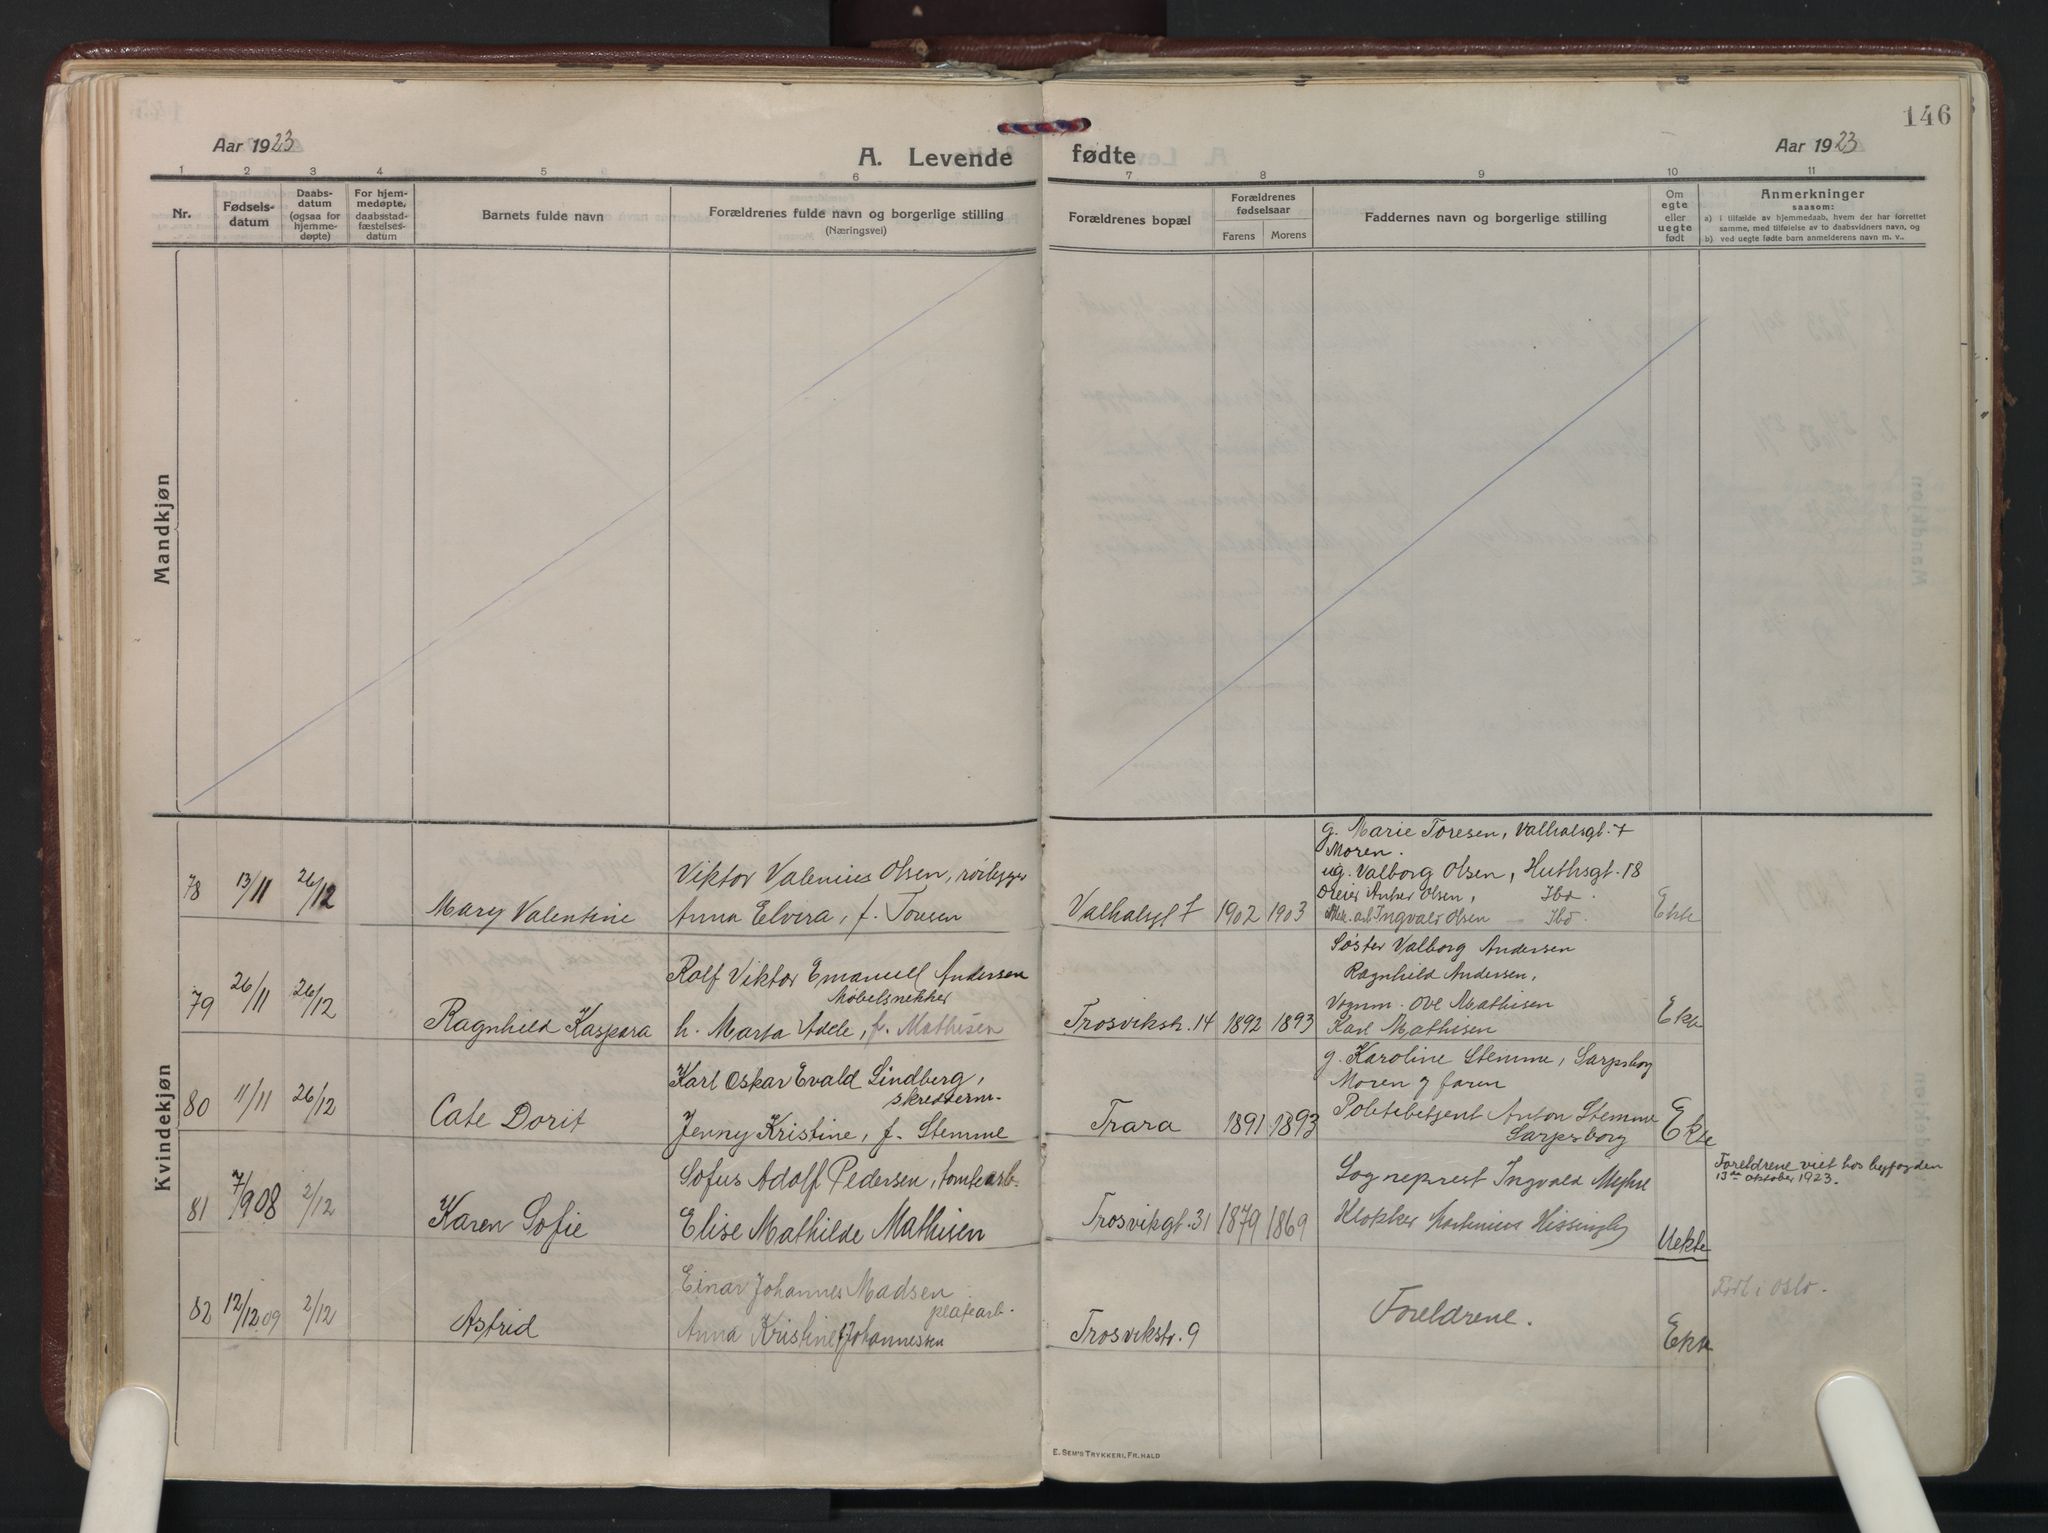 146
Aar 1923
A. Levende fødte
Aar 1923
1 2 3 4 5 6 7 8 9 10 11
Nr.
Fødsels-
datum
Daabs-
datum
(ogsaa for
hjemme-
døpte)
For hjem-
medøpte,
daabsstad-
fæstelses-
datum
Barnets fulde navn
Forældrenes fulde navn og borgerlige stilling
(Næringsvei)
Forældrenes bopæl
Forældrenes
fødselsaar
Farens Morens
Faddernes navn og borgerlige stilling
Om
egte
eller
uegte
født
Anmerkninger
saasom:
a) i tilfælde av hjemmedaab, hvem der har forrettet
samme, med tilføielse av to daabsvidners navn, og
b) ved uegte fødte barn anmelderens navn m. v..
Mandkjøn
Kvindekjøn
78 13/11 26/12
Mary Valentine
Viktor Valenius Olsen, rørlegger
Anna Elvira, f. Toresen
Valhalsgt 7 1902 1903
g. Marie Toresen, Valhalsgt. 7
Moren.
ug. Valborg Olsen, Huthsgt. 18
Dreier Anker Olsen, Ibd.
Mek. arb Ingvald Olsen Ibd.
Ekte
79 26/11 26/12
Ragnhild Kaspara
Rolf Viktor Emanuel Andersen
Møbelsnekker
h. Marta Adele, f. Mathisen
Trosvikstr. 14 1892 1893
Søster Valborg Andersen
Ragnhild Andersen,
Vognm. Ove Mathisen
Karl Mathisen
Ekte
80 11/11 26/12
Cate Dorit
Karl Oskar Evald Lindberg,
skredderm.
Jenny Kristine, f. Stemme
Trara 1891 1893
g. Karoline Stemme, Sarpsborg
Moren og faren
Politibetjent Anton Stemme
Sarpsborg
Ekte
81 7/9 08 2/12
Karen Sofie
Sofus Adolf Pedersen, tomtearb.
Elise Mathilde Mathisen
Trosvikgt. 31 1879 1869
Sogneprest Ingvald
Klokker Martinius Hissingby
Uekte
Foreldrene viet hos byfogden
13de oktober 1923.
82 12/12 09 2/12
Astrid
Einar Johannes Madsen
platearb.
Anna Kristine f Johannessen
Trosvikstr. 9
Foreldrene.
Ekte
Født i Oslo.
E. SEM'S TRYKKERI, FR.HALD